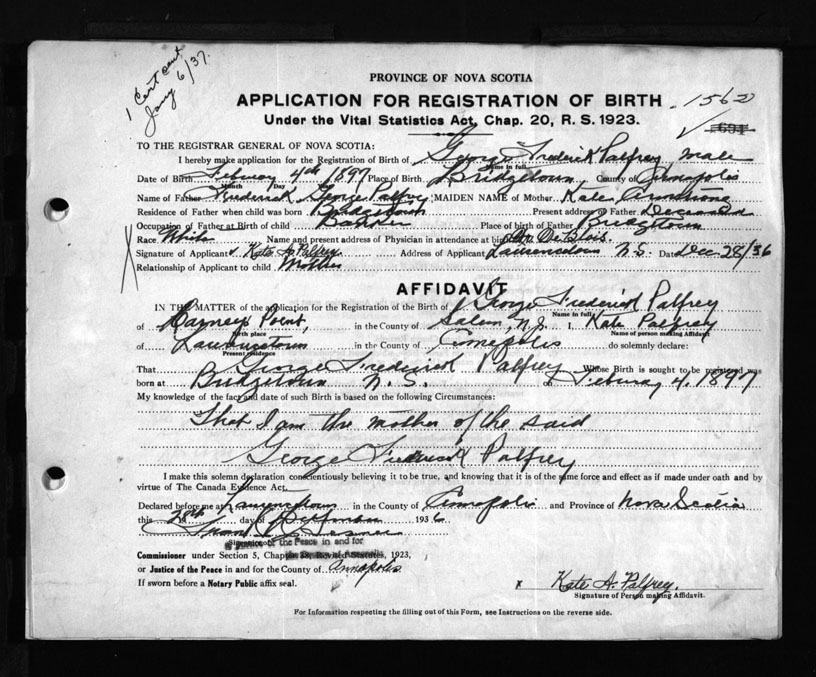 1 Cert sent
Jany 6/37.
PROVINCE OF NOVA SCOTIA
APPLICATION FOR REGISTRATION OF BIRTH 1562
Under the Vital Statistics Act, Chap. 20, R. S. 1923.
TO THE REGISTRAR GENERAL OF NOVA SCOTIA:
I hereby make application for the Registration of Birth of George Frederick Palfrey male
Name in full
Date of Birth Februay 4th 1897 Place of Birth Bridgetown County of Annapolis
Month Day
Name of Father Frederick George Palfrey MAIDEN NAME of Mother Kate Armstrong
Residence of Father when child was born Bridgetown Present address of Father Deceased
Occupation of Father at Birth of child Place of birth of Father Bridgetown
Race White Name and present address of Physician in attendance at birth DeBlois
Signature of Applicant Kate A. Palfrey Address of Applicant Laurencetown N.S. Date Dec 28/36
Relationship of Applicant to child Mother
AFFIDAVIT
IN THE MATTER of the application for the Registration of the Birth of George Frederick Palfrey
Name in full
of Point, in the County of Salem, N.J. I, Kate Palfrey
Birth place Name of person making Affidavit
of Laurencetown in the County of Annapolis do solemnly declare:
Present residence
That George Frederick Palfrey Whose Birth is sought to be registered was
born at Bridgetown N.S. on Februay 4, 1897
My knowledge of the fact and date of such Birth is based on the following Circumstances:
That I am the mother of the said
George Frederick Palfrey
I make this solemn declaration conscientiously believing it to be true, and knowing that it is of the same force and effect as if made under oath and by
virtue of The Canada Evidence Act.
Declared before me at Laurencetown in the County of Annapolis and Province of Nova Scotia
this 28th day of December 1936
Signature of the Peace in and for
Commissioner under Section 5, Chapter Revised Statutes, 1923,
or Justice of the Peace in and for the County of Annapolis
If sworn before a Notary Public affix seal.
x Kate A. Palfrey.
Signature of Person making Affidavit.
For Information respecting the filling out of this Form, see Instructions on the reverse side.